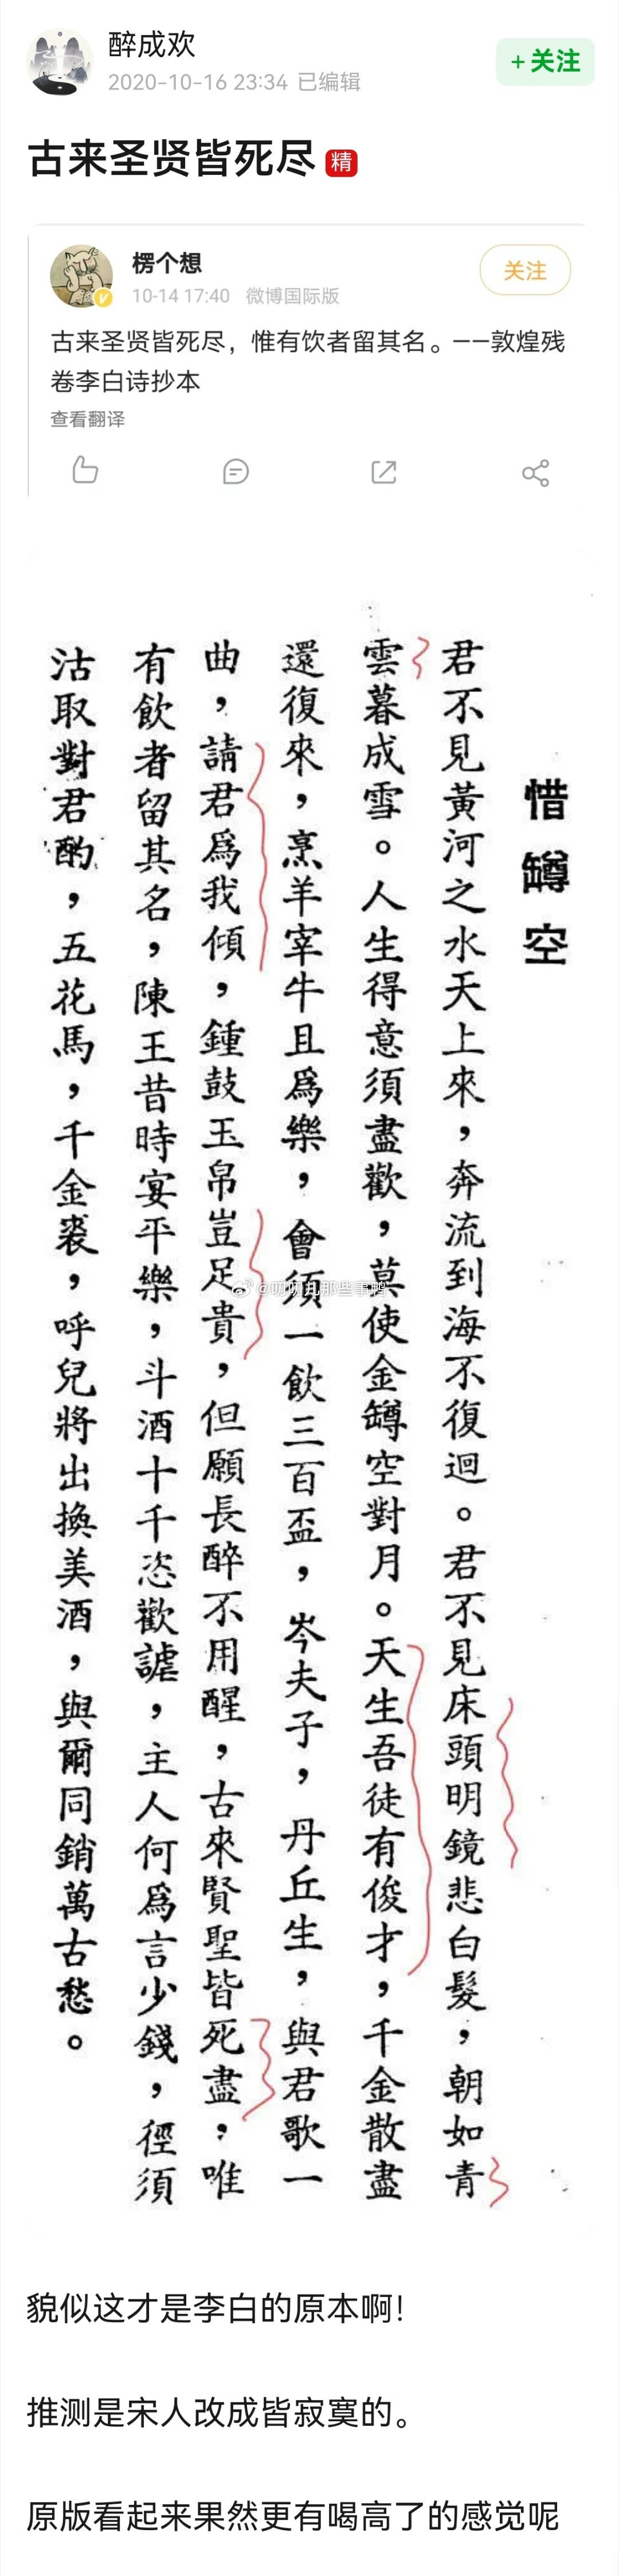 醉成欢
2020-10-16 23:34 已编辑
+关注
古来圣贤皆死尽 精
楞个想
10-14 17:40 微博国际版
关注
古来圣贤皆死尽，惟有饮者留其名。——敦煌残
卷李白诗抄本
查看翻译
惜罇空
君不見黃河之水天上來，奔流到海不復迴。君不見床頭明鏡悲白髮，朝如青
雲暮成雪。人生得意須盡歡，莫使金罇空對月。天生吾徒有俊才，千金散盡
還復來，烹羊宰牛且爲樂，會須一飲三百盃，岑夫子，丹丘生，與君歌一
曲，請君爲我傾，鍾鼓玉帛豈足貴，但願長醉不用醒，古來賢聖皆死盡，唯
有飲者留其名，陳王昔時宴平樂，斗酒十千恣歡謔，主人何爲言少錢，徑須
沽取對君酌，五花馬，千金裘，呼兒將出換美酒，與爾同銷萬古愁。
貌似这才是李白的原本啊!
推测是宋人改成皆寂寞的。
原版看起来果然更有喝高了的感觉呢